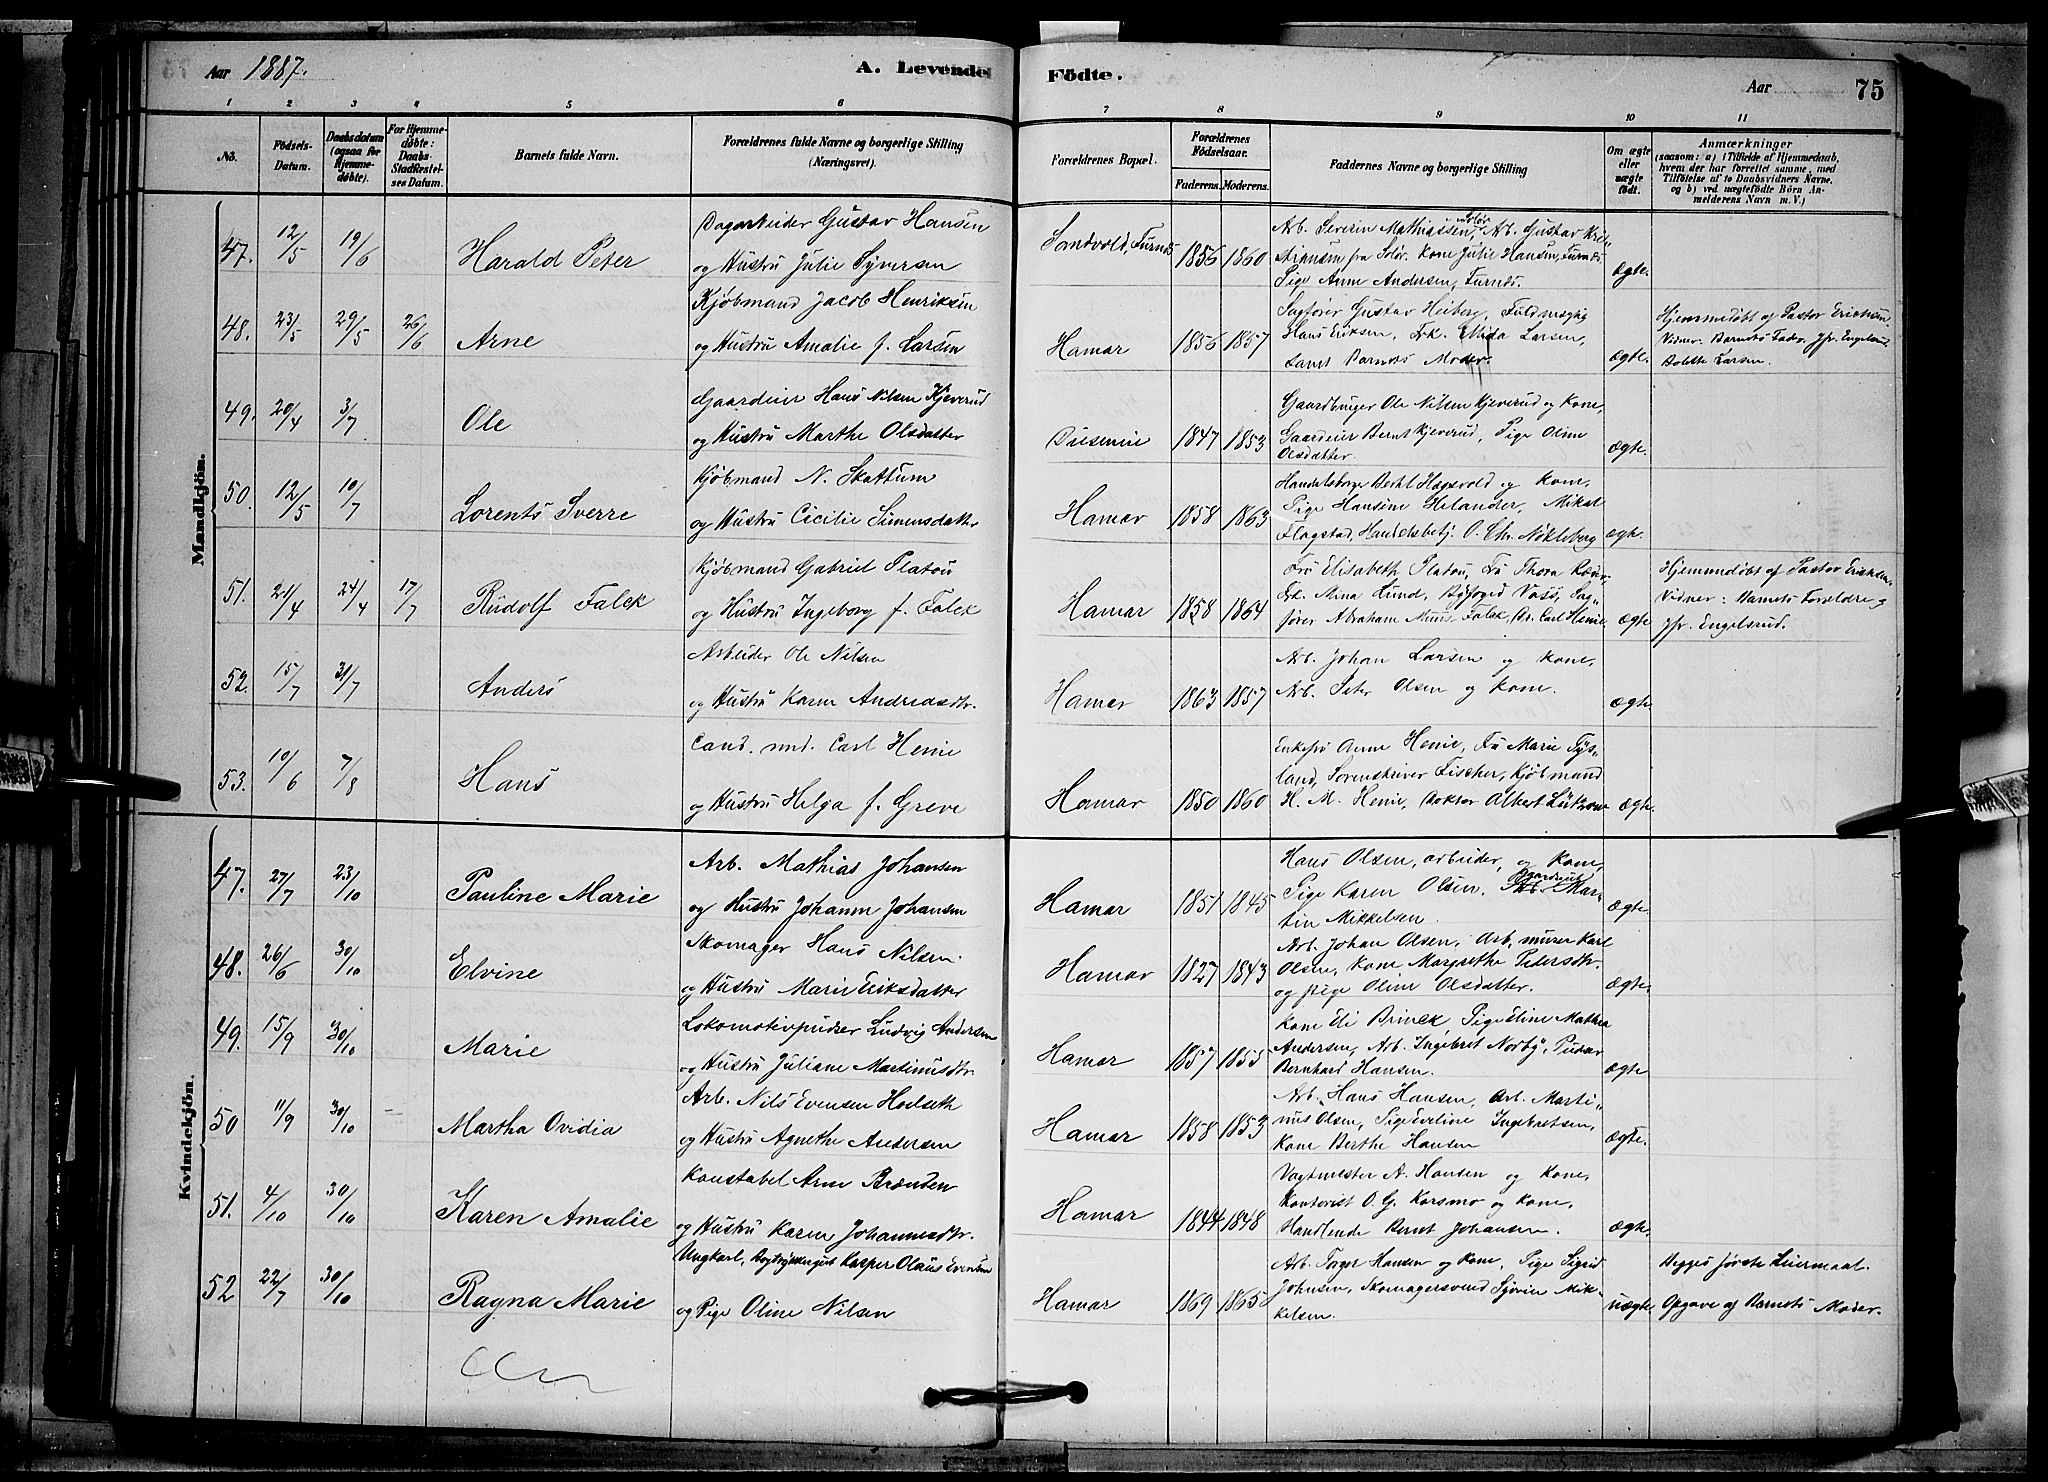 Aar 1887.
A. Levende
Födte.
Aar
75
1 2 3 4 5 6 7 8 9 10 11
No.
Födsels-
Datum.
Daabsdatum
(ogsaa for
Hjemme-
döbte).
For Hjemme-
döbte:
Daabs-
Stadfæstel-
ses Datum.
Barnets fulde Navn.
Forældrenes fulde Navne og borgerlige Stilling
(Næringsvei).
Forældrenes Bopæl.
Forældrenes
Födselsaar.
Faderens. Moderens.
Faddernes Navne og borgerlige Stilling
Om ægte
eller
uægte
födt.
Anmærkninger
(saasom: a) i Tilfælde af Hjemmedaab,
hvem der har forrettet samme, med
Tilföielse af to Daabsvidners Navne,
og b) ved uægtefödte Börn An-
melderens Navn m. V.)
Mandkjön.
47. 12/5 19/6
Harald Peter
Dagarbeider Gustav Hansen
og Hustru Julie Syversen
Sandvold, Furnes
1856 1860
Arb. Severin Mathiassen, Solør, Arb. Gustav Kri-
stiansen fra Solør. Kone Julie Hansen, Furnes
Pige Anne Andersen, Furnes.
ægte.
48. 23/5 29/5 26/6
Arne
Kjøbmand Jacob Henriksen
og Hustru Amalie f. Larsen
Hamar
1856 1857
Sagfører Gustav Heiberg, Fuldmægtig
Hans Eriksen, Frk. Larsen,
samt Barnets Moder.
ægte.
Hjemmedøbt af Pastor Erichsen.
Vidner: Barnets Fader, Jfr. Engelsrud,
Bolette Larsen.
49. 20/4 3/7
Ole
Gaardeier Hans Nilsen Kjeverud
og Hustru Marthe Olsdatter
1847 1853
Gaardbruger Ole Nilsen Kjeverud og Kone,
Gaardeier Bernt Kjeverud, Pige Oline
Olsdatter.
ægte.
50. 12/5 10/7
Lorents Sverre
Kjøbmand N. Skattum
og Hustru Cicilie Simensdatter
Hamar
1858 1863
Hagsvold og Kone,
Pige Hansine Helander, Mikal
Flagstad, Handelsbetj. O. Chr. Nøkleberg
ægte.
51. 21/4 24/4 17/7
Rudolf Falck
Kjøbmand Gabriel Platou
og Hustru Ingeborg f. Falck
Hamar
1858 1864
Fru Elisabeth Platou, Fru Thora
Frk. Mina Lund, Byfoged Voss, Sag-
fører Abraham Falck, Dr. Carl Henie
ægte
Hjemmedøbt af Pastor Erichsen.
Vidner: Barnets Forældre og
Jfr. Engelsrud.
52. 15/7 31/7
Anders
Arbeider Ole Nilsen
og Hustru Karen Andreasdtr.
Hamar
1863 1857
Arb. Johan Larsen og Kone,
Arb. Peter Olsen og Kone.
ægte.
53. 10/6 7/8
Hans
Cand. med. Carl Henie
og Hustru Helga f. Greve
Hamar
1850 1860
Enkefru Anne Henie, Fru Marie Fys-
land, Sorenskriver Fischer, Kjøbmand
H. M. Henie, Doktor Albert
ægte.
Kvindekjön.
47. 27/7 23/10
Pauline Marie
Arb. Mathias Johansen
og Hustru Johanne Johansen
Hamar
1851 1845
Hans Olsen, arbeider, og Kone,
Pige Karen Olsen. Mar-
tin Mikkelsen.
ægte
48. 26/6 30/10
Elvine
Skomager Hans Nilsen.
og Hustru Marie Eriksdatter
Hamar
1827 1843
Arb. Johan Olsen, Arb. murer Karl
Olsen, Kone Margrethe Petersdtr.
og pige Oline Olsdatter.
ægte.
49. 15/9 30/10
Marie
Lokomotivpudser Ludvig Andersen
og Hustru Juliane Martinusdtr.
Hamar
1857 1855
Kone Eli Brinck, Pige Eline Mathea
Andersen, Arb. Ingebret Norby, Pudser
Bernhard Hansen.
ægte
50 11/9 30/10
Martha Ovidia
Arb. Nils Evensen Hodseth
og Hustru Agnethe Andersen
Hamar
1858 1853
Arb. Hans Hansen, Arb. Marti-
nus Olsen, Pige Eveline Ingebretsen,
Kone Berthe Hansen
ægte.
51. 4/10 30/10
Karen Amalie
Konstabel Arne Brænden
og Hustru Karen Johannesdtr.
Hamar
1844 1848
Vagtmester A. Hansen og Kone,
Kontorist O. G. Korsmo og Kone,
Handlende Bernt Johansen.
ægte.
52 22/7 30/10
Ragna Marie
Ungkarl, Kasper Olaus Evensen
og Pige Oline Nilsen
Hamar
1869 1865
Arb. Torger Hansen og Kone, Pige Sigrid
Johnsen, Skomagersvend Syver Mik-
kelsen.
uægte
Begges første Leiermaal.
Opgave af Barnets Moder.